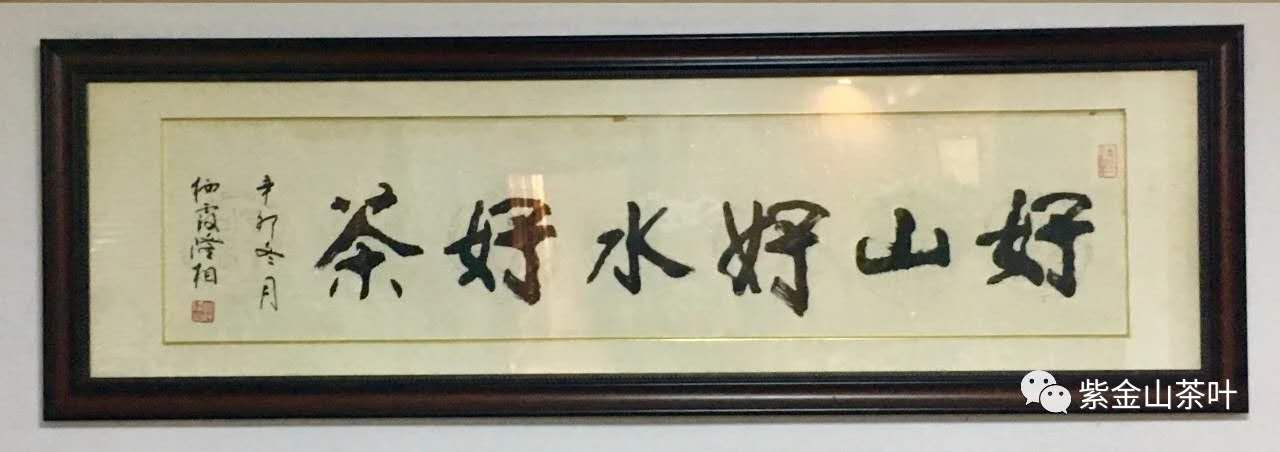 好山好水好茶
辛卯冬月
栖霞隆相
紫金山茶叶